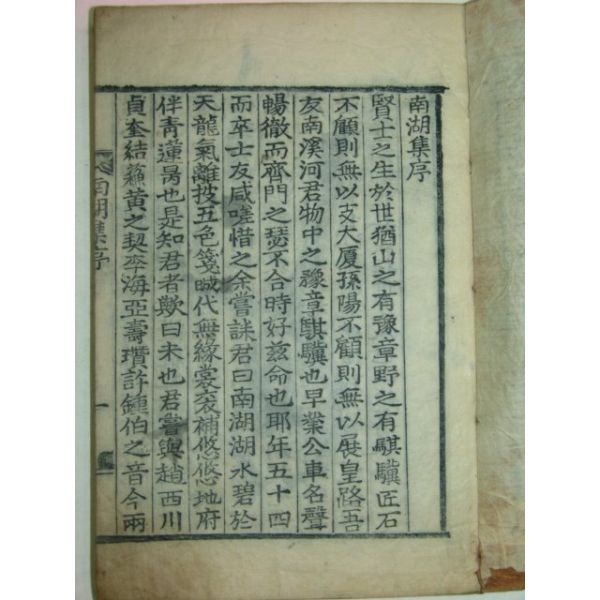 南湖集序
賢士之生於世猶山之有豫章野之有騏驥匠石
不顧則無以支大厦孫陽不顧則無以展皇路吾
友南溪河君物中之豫章騏驥也早業公車名聲
暢徹而齊門之瑟不合時好玆命也耶年五十四
而卒士友咸嗟惜之余嘗誄君曰南湖湖水碧於
天龍氣離披五色箋聝代無緣裳袞補悠悠地府
伴靑蓮曷也是知君者歟曰未也君嘗與趙西川
貞奎結蘓黃之契李海亞壽瓚許鍾伯之音今兩
南湖集序
一